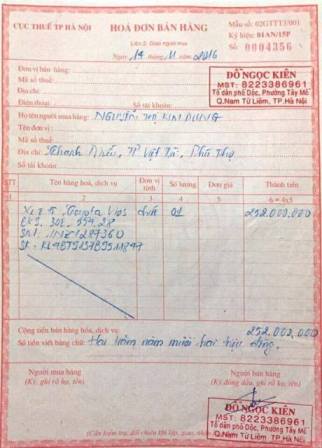 CỤC THUẾ TP HÀ NỘI
HOÁ ĐƠN BÁN HÀNG
Mẫu số: 02GTTT3/001
Ký hiệu: 01AN/15P
Số: 0004356
Liên 2: Giao người mua
Ngày 14 tháng 11 năm 2016
Đơn vị bán hàng:
Mã số thuế:
Địa chỉ:
Điện thoại
Số tài khoản:
ĐỖ NGỌC KIÊN
MST: 8223386961
Tổ dân phố Dộc, Phường Tây Mỗ
Q.Nam Từ Liêm, TP.Hà Nội
Họ tên người mua hàng: NGUYỄN THỊ KIM DUNG
Tên đơn vị:
Mã số thuế:
Địa chỉ: TP Việt Trì, Phú Thọ
Số tài khoản:
STT
Tên hàng hoá, dịch vụ
Đơn vị tính
Số lượng
Đơn giá
Thành tiền
1
2
3
4
5
6 = 4x5
chiếc 01 252.000.000
Cộng tiền bán hàng hóa, dịch vụ: 252.000.000
Số tiền viết bằng chữ: Hai trăm năm mươi hai triệu đồng.
Người mua hàng
(Ký, ghi rõ họ, tên)
Người bán hàng
(Ký đóng dấu, ghi rõ họ, tên)
ĐỖ NGỌC KIÊN
MST: 8223386961
Tổ dân phố Dộc, Phường Tây Mỗ
Q.Nam Từ Liêm, TP.Hà Nội